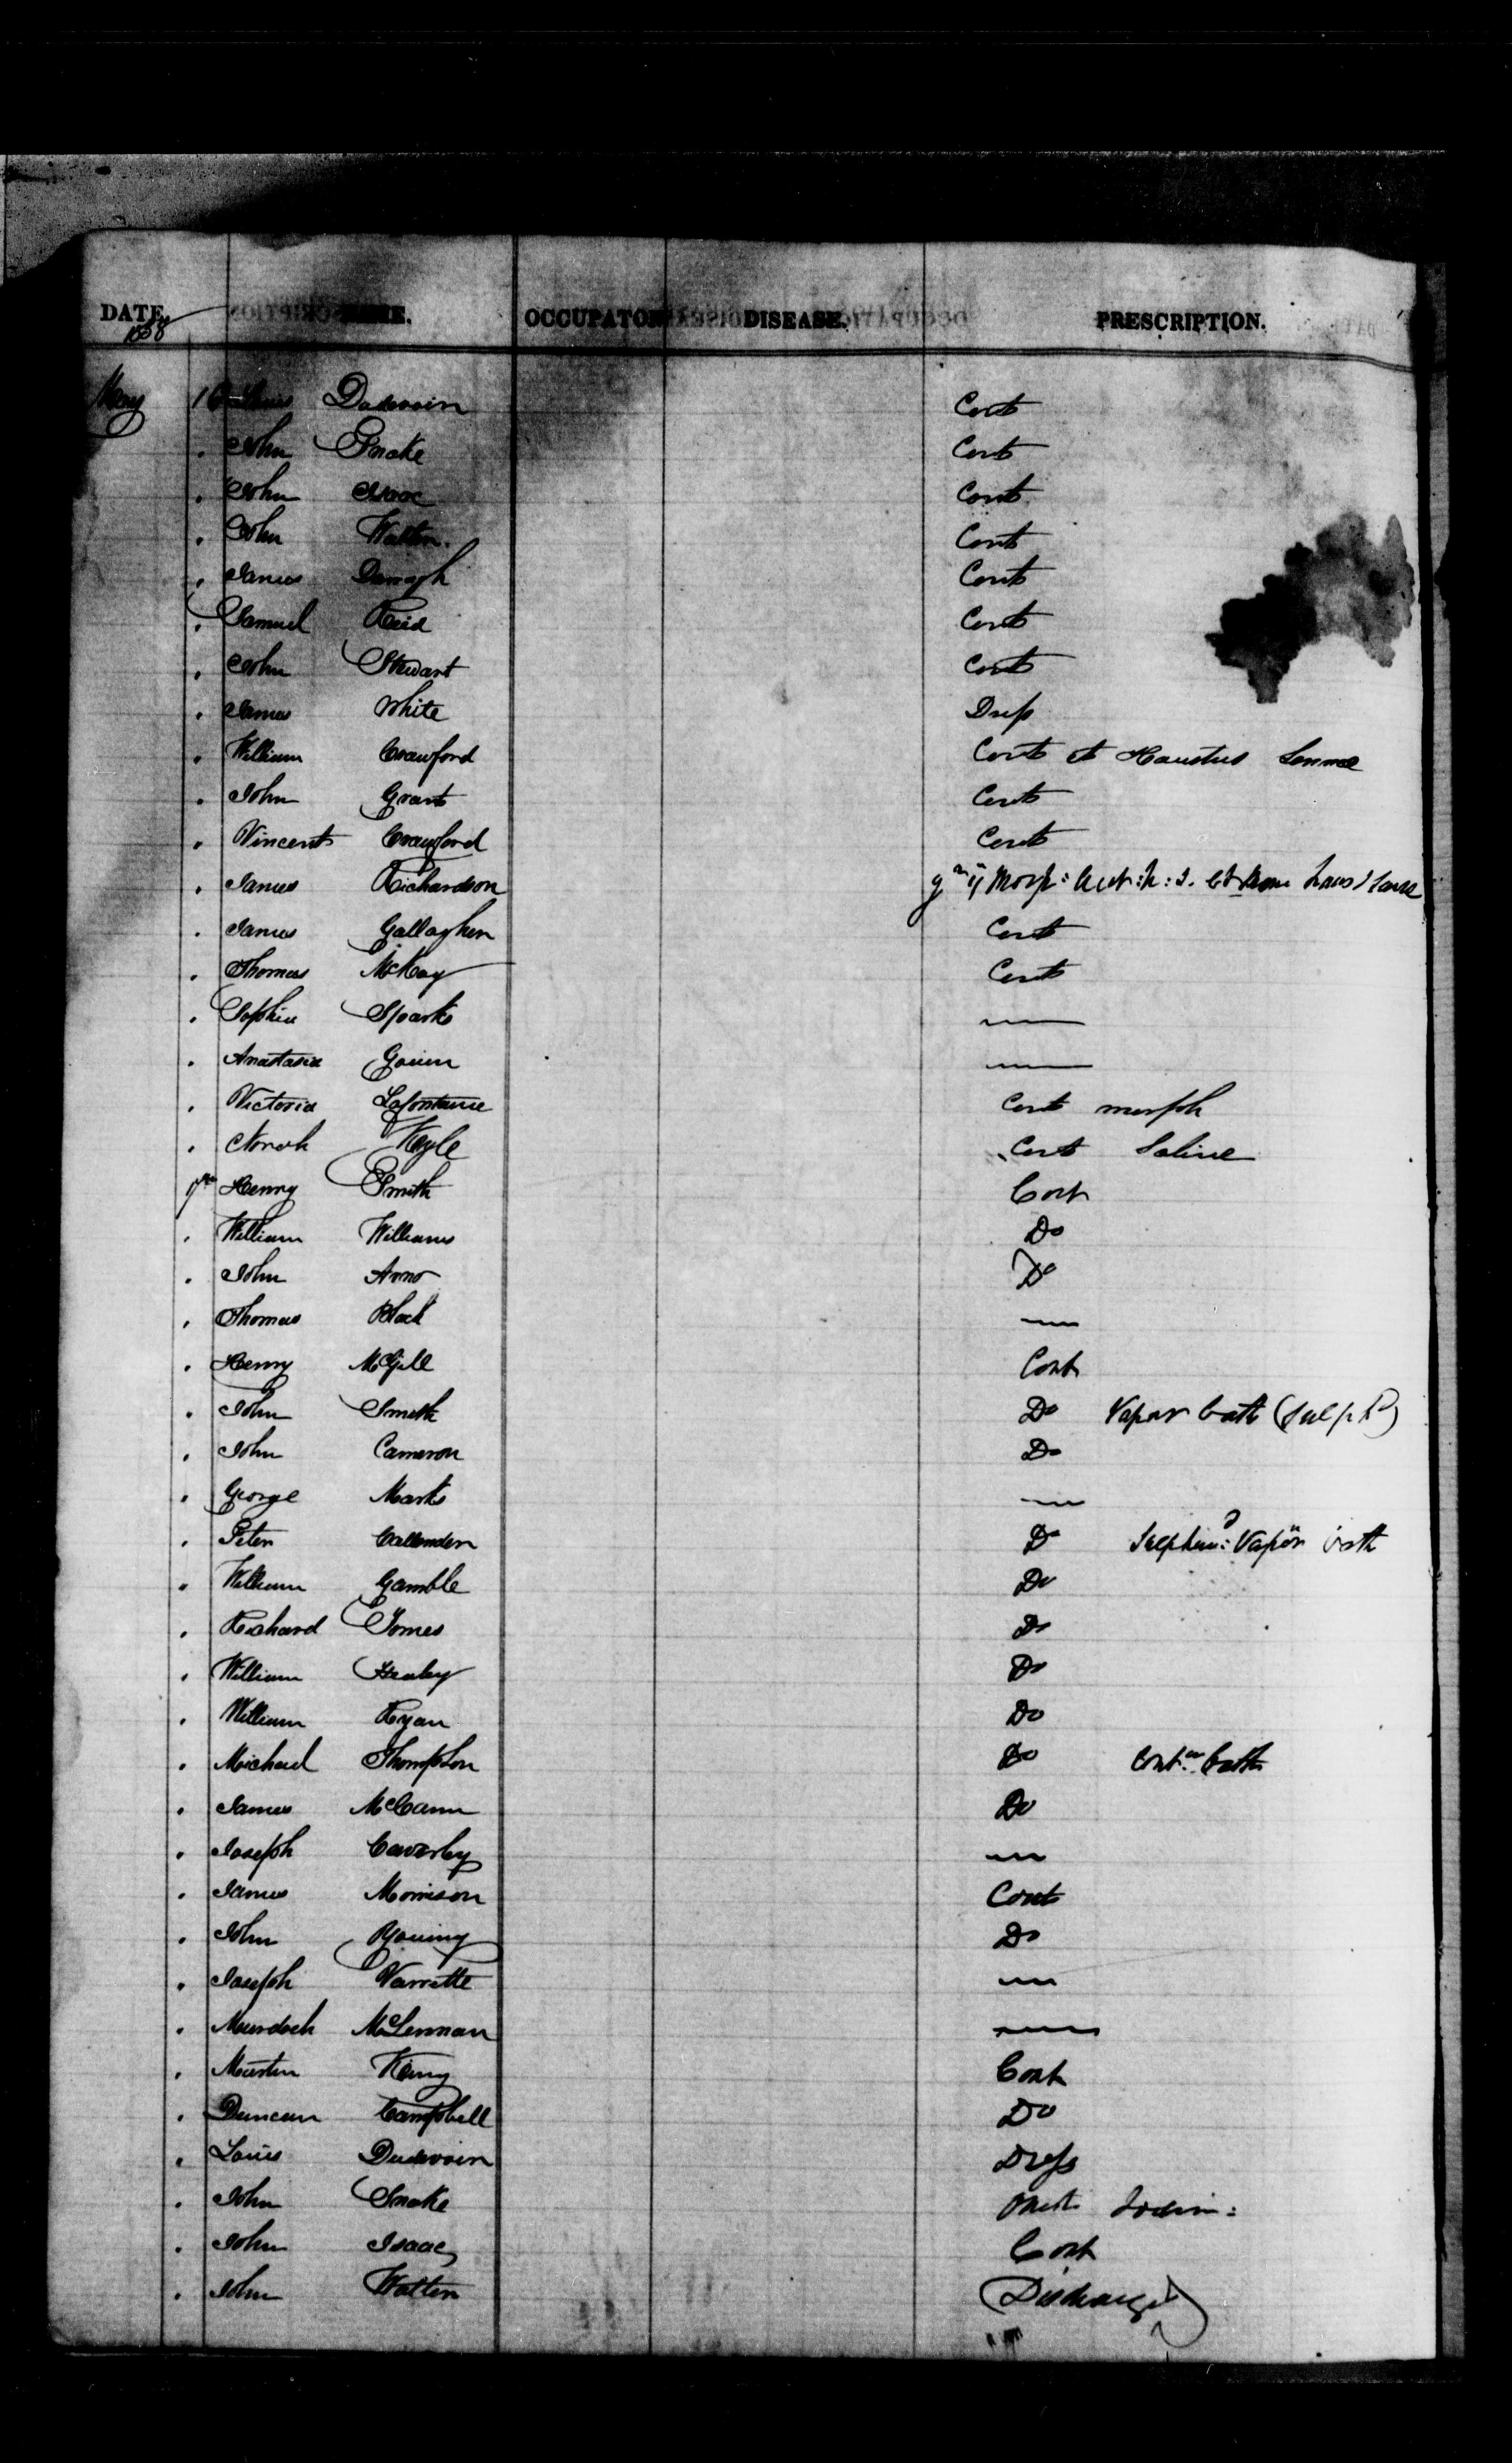 DATE. NAME. OCCUPATON DISEASE. PRESCRIPTION.
1858
May 16 Louis Dadevoin Cont
" John Snake Cont
" John Isaac Cont
" John Walten Cont
" James Darragh Cont
" Samuel Reid Cont
" John Stewart Cont
" James White Dress
" William Crawford Cont et Haustus Sennae
" John Grant Cont
" Vincent Crawford Cont
" James Richardson Morph: Acet: h: s. et
" James Gallagher Cont
" Thomas McKay Cont
" Sophia Sparks —
" Anastasia —
" Victoria Lafontaine Cont morph
" Norah Kegle Cont Saline
17 Henry Smith Cont
" William Williams Do
" John Do
" Thomas Black —
" Henry McGill Cont
" John Smith Do Vapor bath (Sulph)
" John Cameron Do
" George Marks —
" Peter Callender Do Vapor bath
" William Gamble Do
" Richard Jomes Do
" William Healey Do
" William Ryan Do
" Michael Thompson Do bath
" James McCann Do
" Joseph Caverley —
" James Morrison Cont
" John Young Do
" Joseph Varrette —
" Murdoch McLennan —
" Martin Keny Cont
" Duncan Campbell Do
" Louis Dudevoin Dress
" John Snake
" John Isaac Cont
" John Walten Discharged